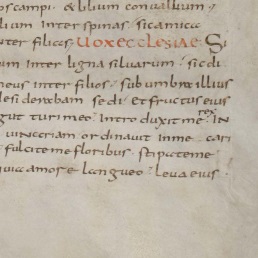 os campi . & lilium convallium .
lilium inter spinas . sic amica
nter filias . Vox ecclesiae Si
um inter ligna silvarum . sic di
meus inter filios . sub umbra illius
desiderabam sedi . et fructus eius
gut turi meo . Intro duxit me rex . IN
vinariam ordinavit in me cari
fulcite me floribus . stipate me
quia amore langueo . Leva eius